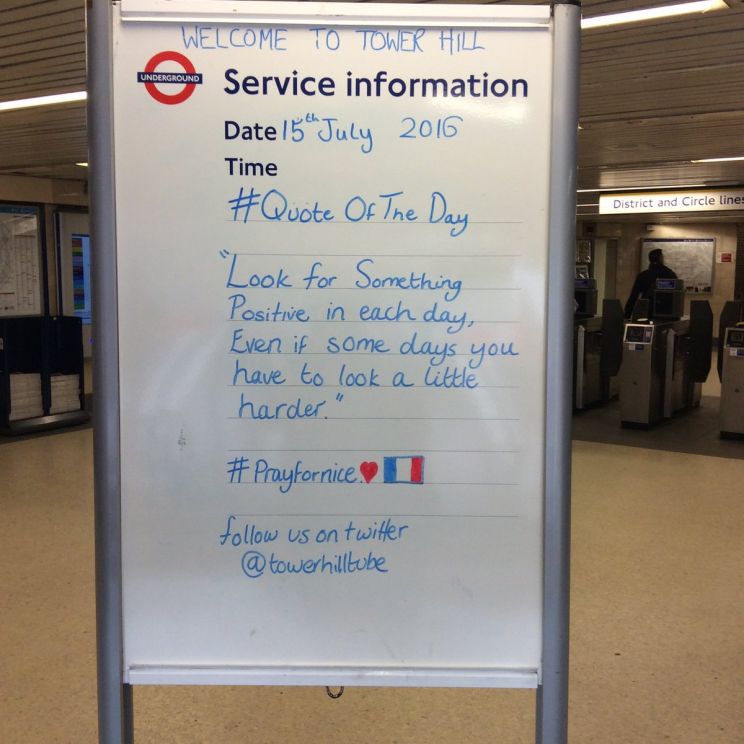 WELCOME TO TOWER HILL
UNDERGROUND
Service information
Date 15th July 2016
Time
#Quote Of The Day
"Look for Something
Positive in each day,
Even if some days you
have to look a little
harder."
#Prayfornice.
follow us on twitter
@towerhilltube
District and Circle lines